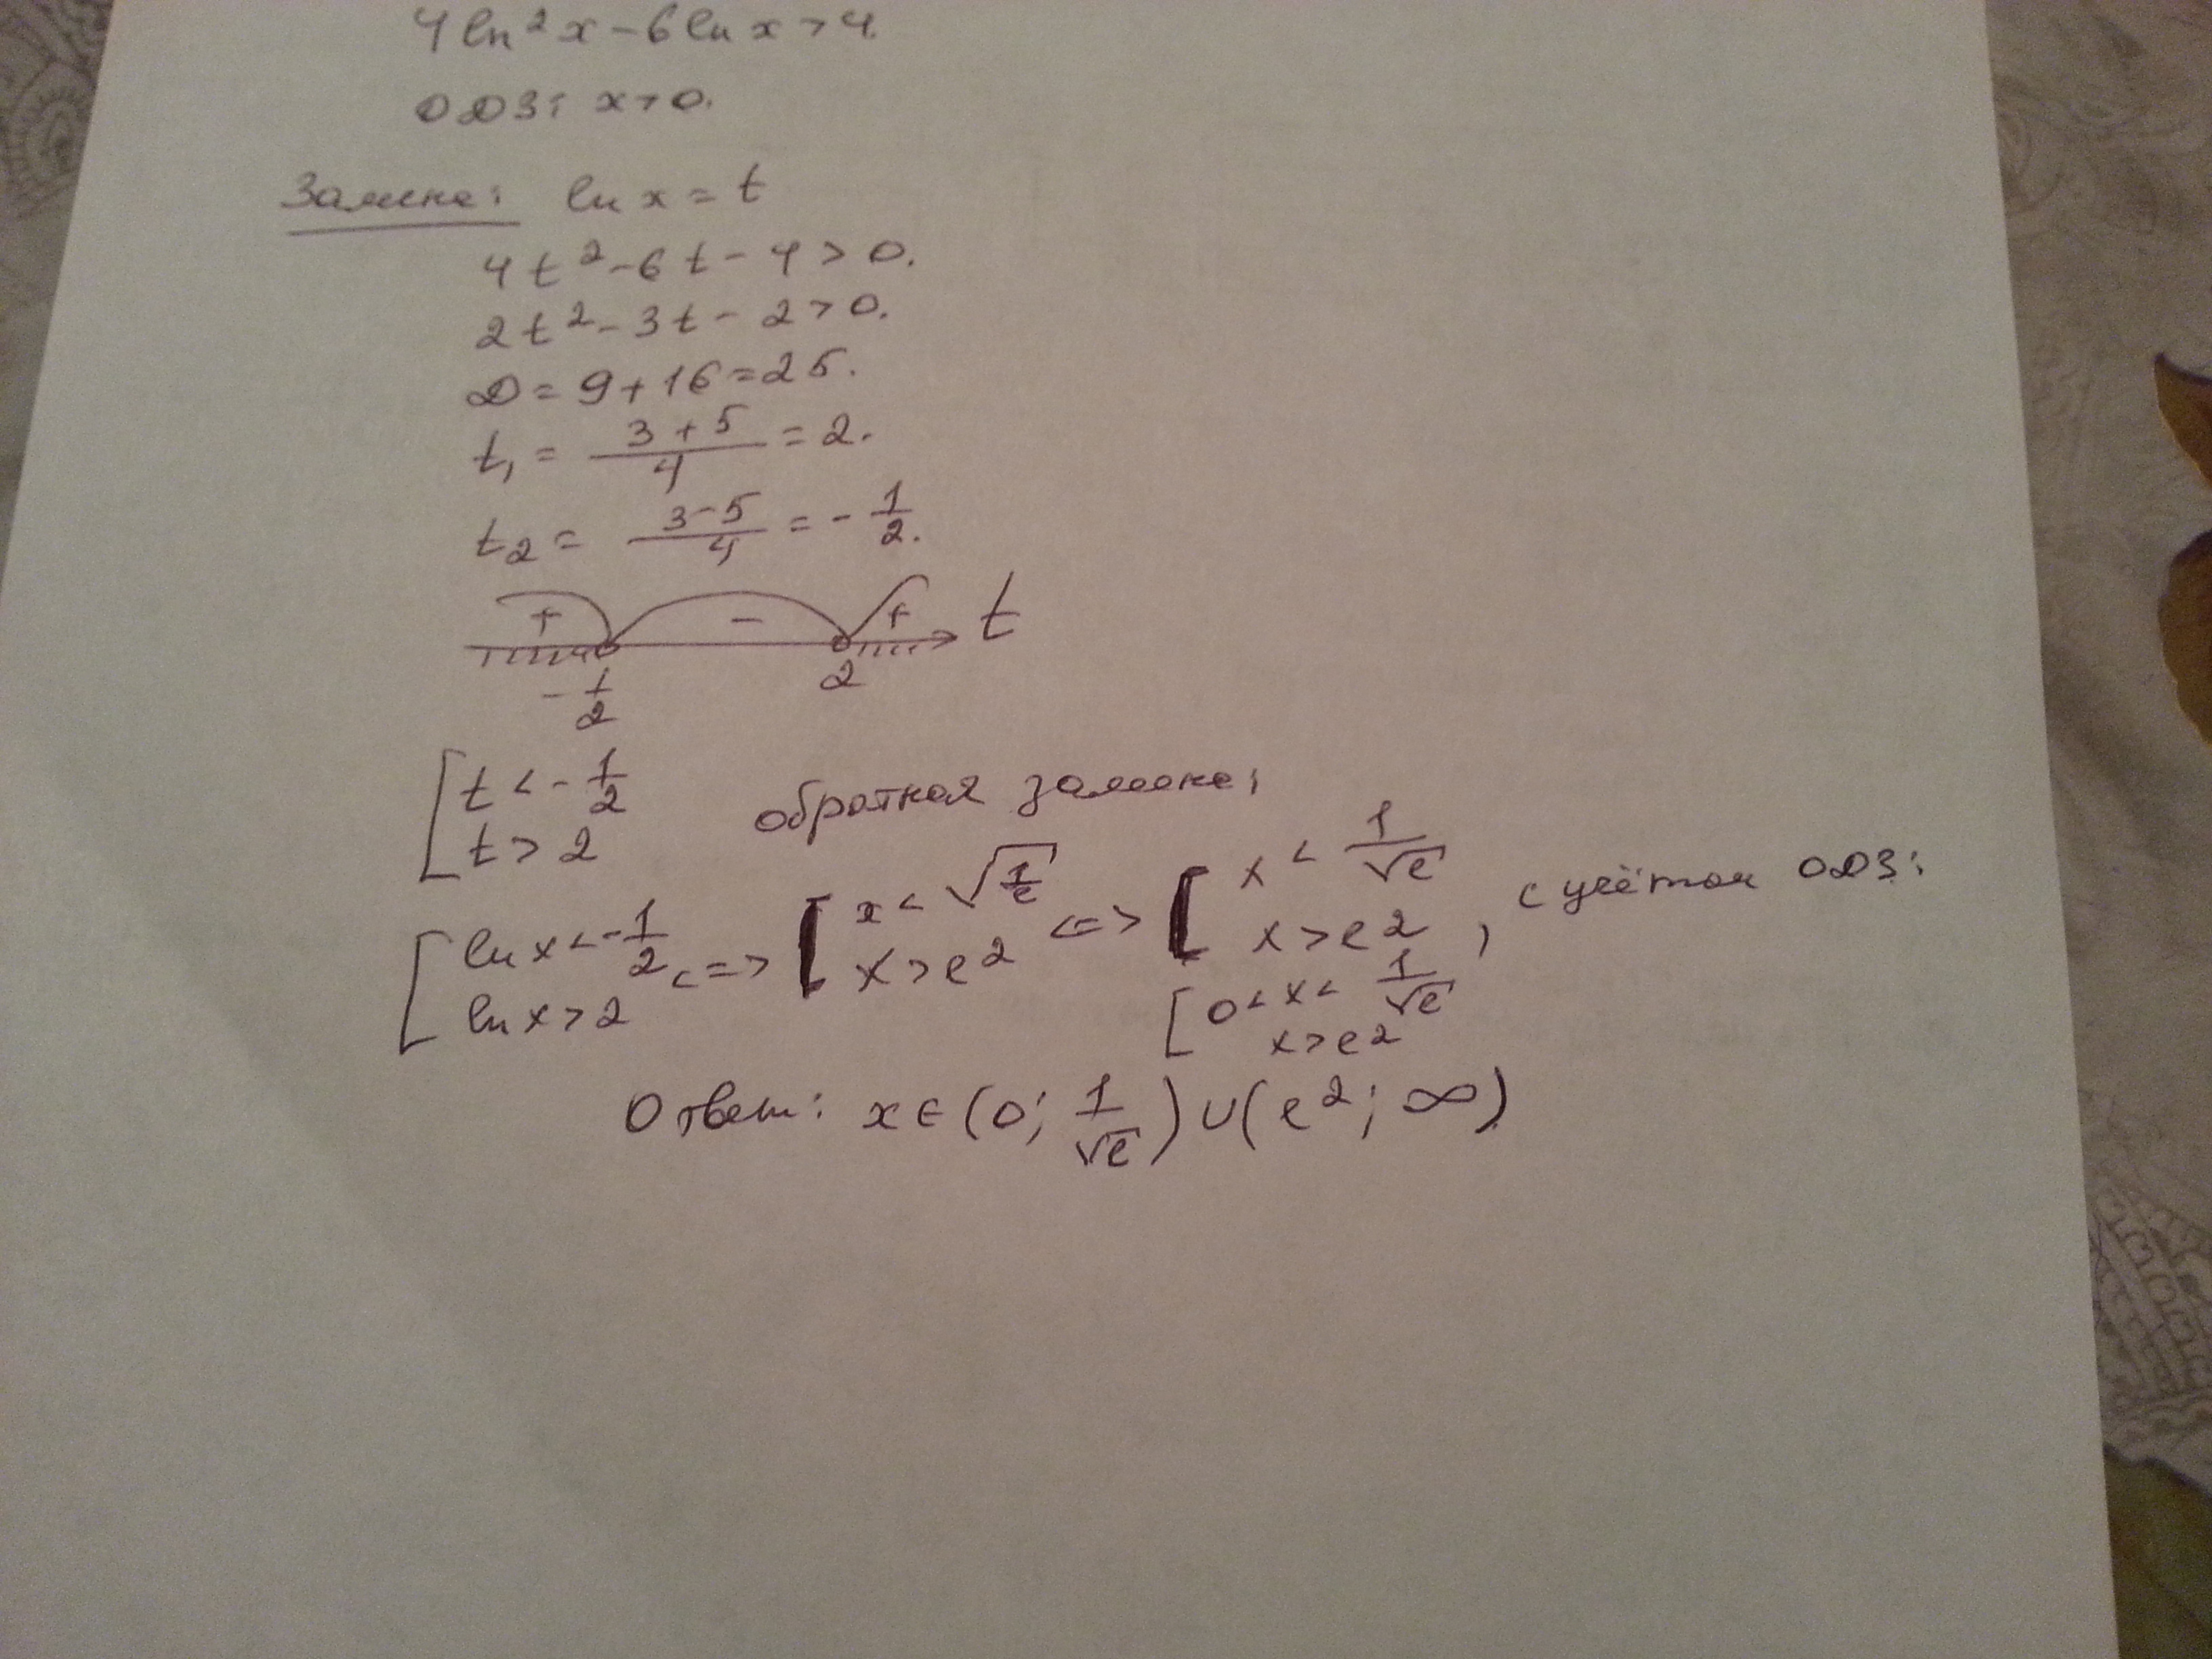 4 ln² x - 6 ln x > 4.
ОДЗ: x > 0.
Замена: ln x = t
4t² - 6t - 4 > 0.
2t² - 3t - 2 > 0.
D = 9 + 16 = 25.
t₁ = (3 + 5)/4 = 2.
t₂ = (3 - 5)/4 = - 1/2.
+ - + t
- 1/2 2
[ t < - 1/2
t > 2
обратная замена:
[ ln x < - 1/2
ln x > 2
<=> [ x < √(1/e)
x > e²
<=> [ x < 1/√e
x > e² , с учётом ОДЗ:
[ 0 < x < 1/√e
x > e²
Ответ: x ∈ (0; 1/√e) ∪ (e²; ∞).